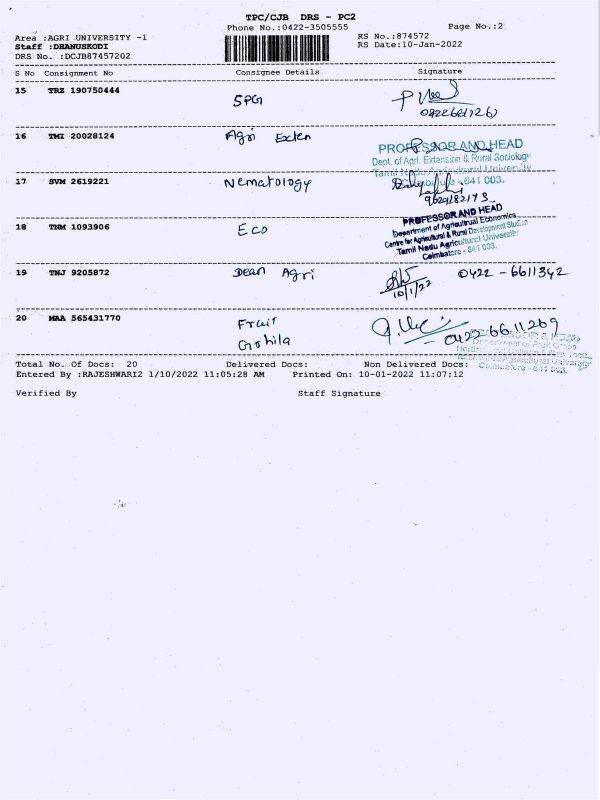 TPC/CJB DRS - PC2
Phone No.:0422-3505555 Page No.:2
Area :AGRI UNIVERSITY -1 RS No.:874572
Staff :DHANUSKODI RS Date:10-Jan-2022
DRS No. :DCJB87457202
S No Consignment No Consignee Details Signature
15 TRZ 190750444 SPG
16 TMI 20028124 Agri Exten
PROFESSOR AND HEAD
Dept. of Agrl. Extension & Rural Sociology
Tamil Nadu Agricultural University
641 003.
17 SVM 2619221 Nematology
9629182173
18 TNM 1093906 Eco
PROFESSOR AND HEAD
Department of Agricultural Economics
Centre for Agricultural & Rural Development
Tamil Nadu Agricultural University
Coimbatore - 641 003.
19 TNJ 9205872 Dean Agri 0422 - 6611342
10/1/22
20 MAA 565431770 Fruit 0422 6611269
Total No. Of Docs: 20 Delivered Docs: Non Delivered Docs:
Entered By :RAJESHWARI2 1/10/2022 11:05:28 AM Printed On: 10-01-2022 11:07:12
Verified By Staff Signature